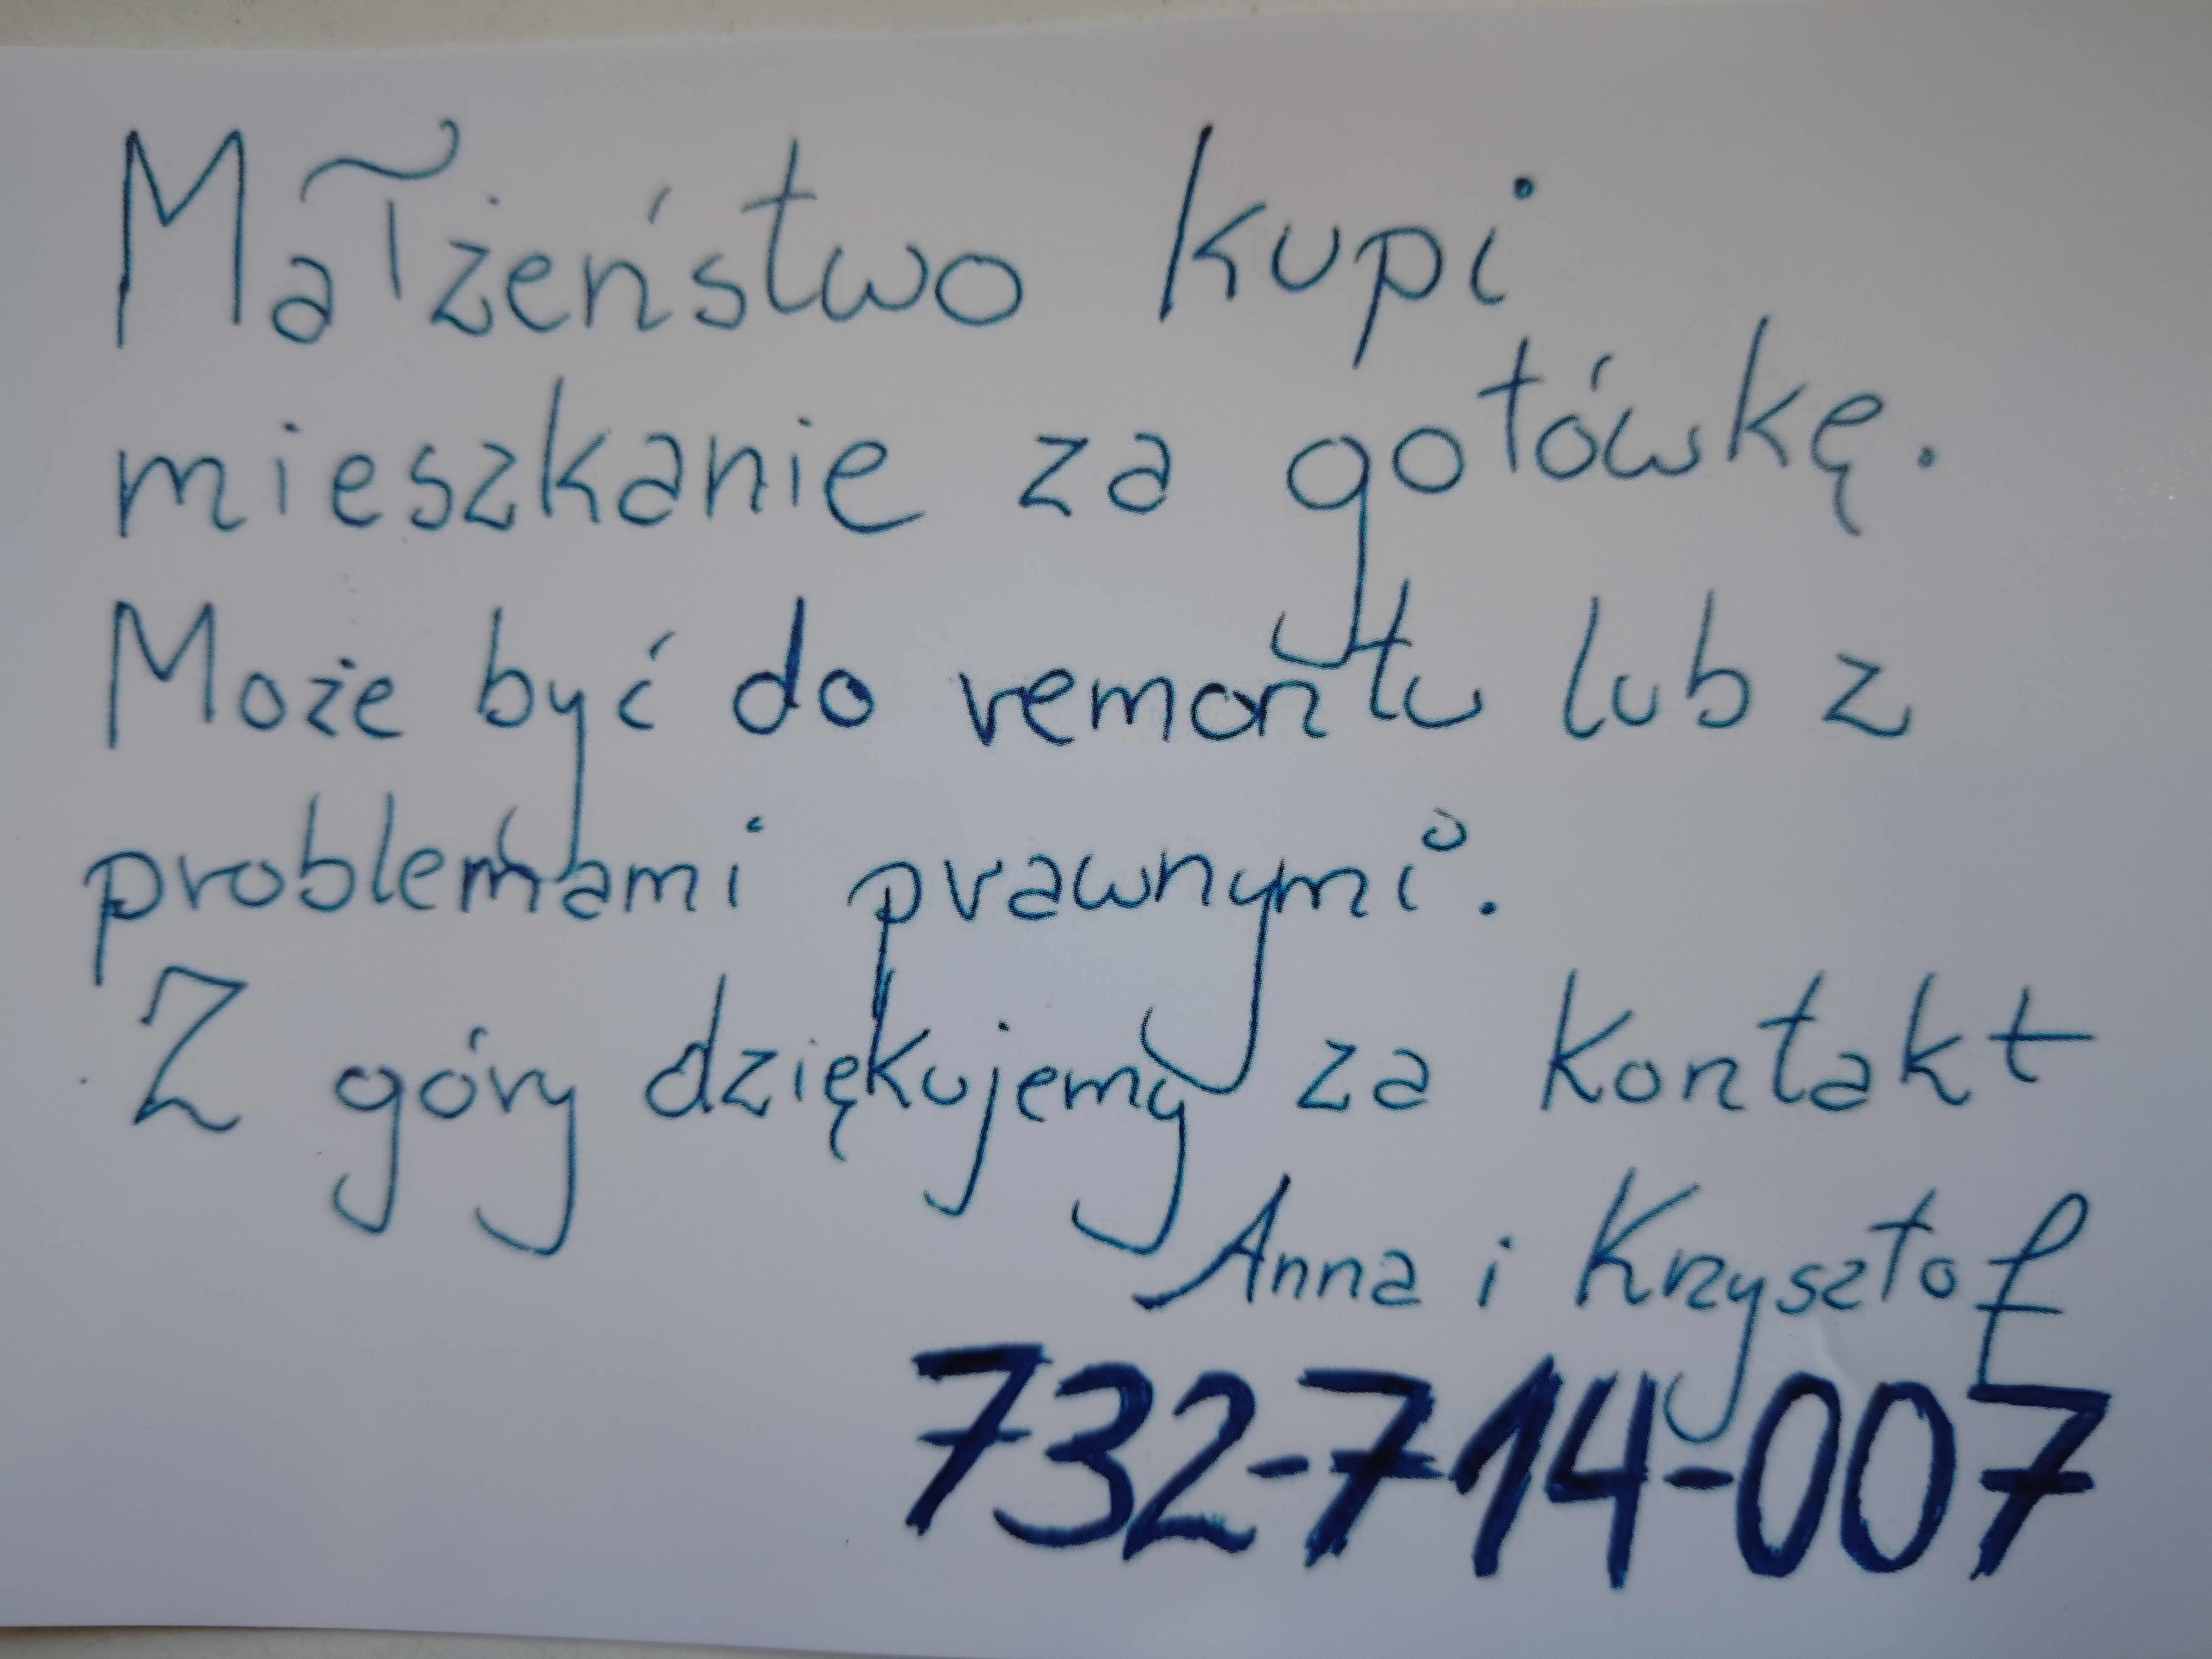 Małżeństwo kupi
mieszkanie za gotówkę.
Może być do remontu lub z
problemami prawnymi.
Z góry dziękujemy za kontakt
Anna i Krzysztof
732-714-007